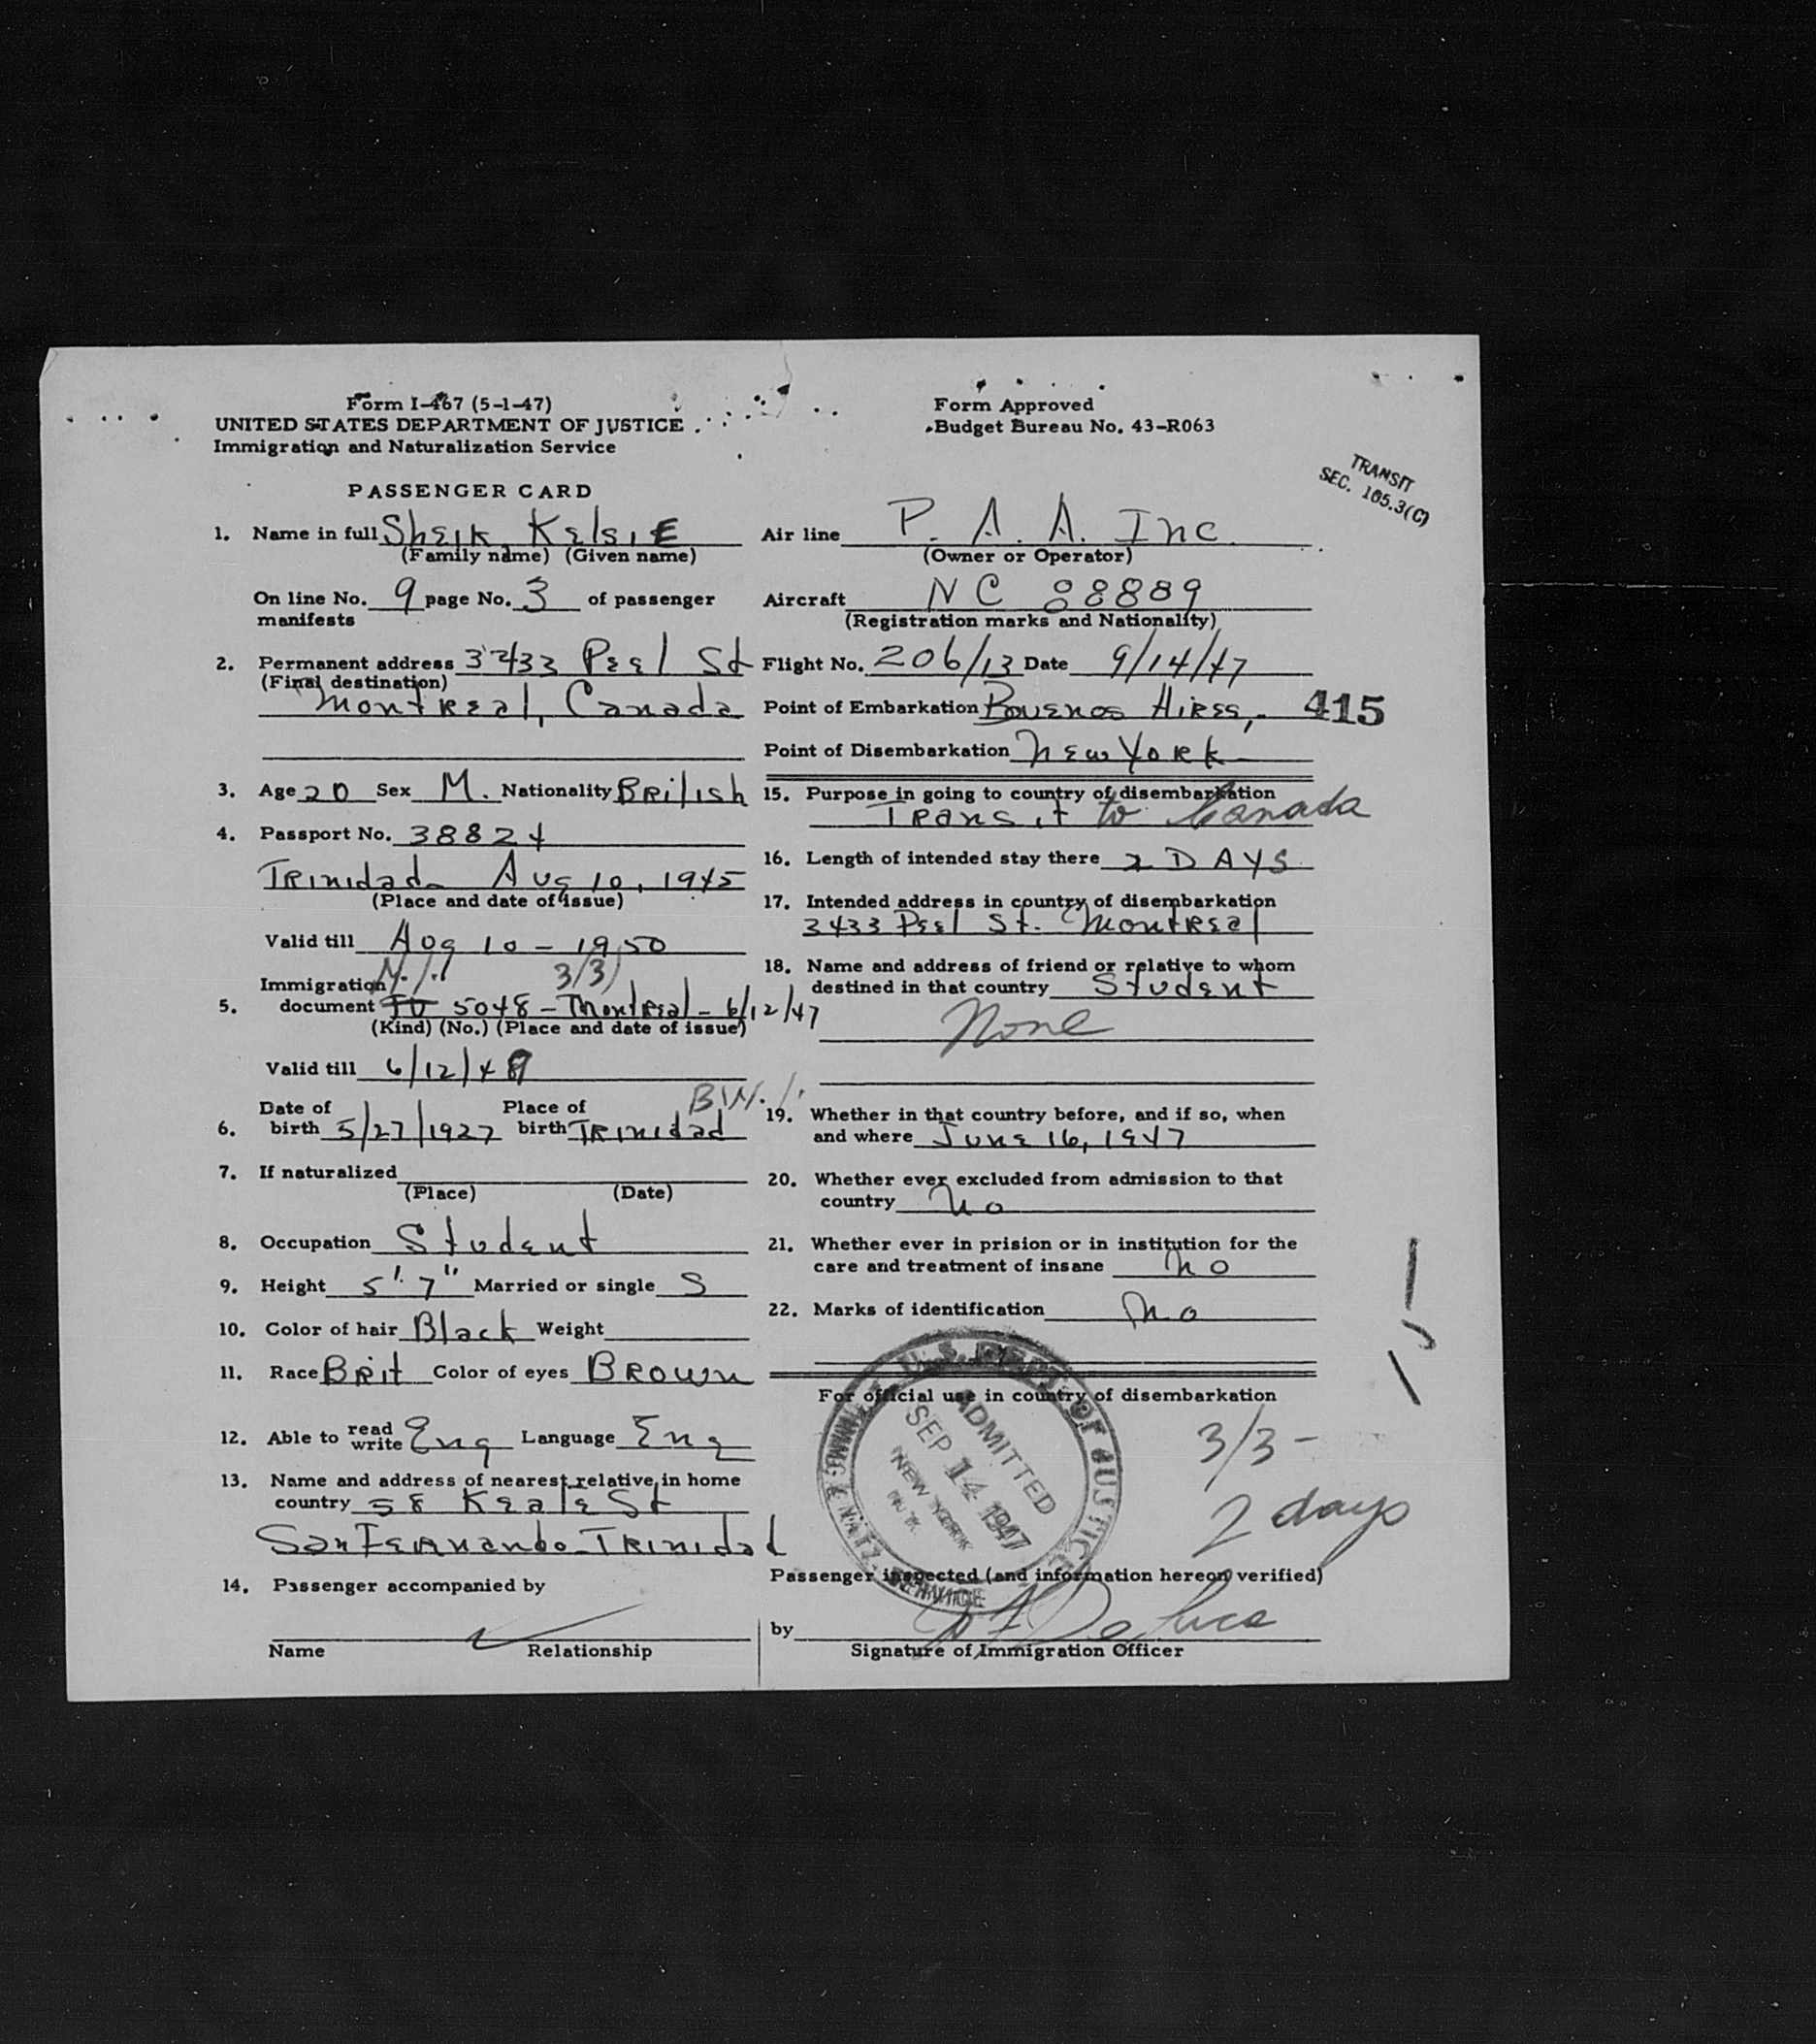 Form I-467 (5-1-47)
UNITED STATES DEPARTMENT OF JUSTICE
Immigration and Naturalization Service
Form Approved
Budget Bureau No. 43-R063
TRANSIT
SEC. 165.3(C)
PASSENGER CARD
1. Name in full Sheik, Kelsie
(Family name) (Given name)
On line No. 9 page No. 3 of passenger
manifests
2. Permanent address 3433 Peel St
(Final destination)
Montreal, Canada
3. Age 20 Sex M. Nationality British
4. Passport No. 38824
Trinidad Aug 10, 1945
(Place and date of issue)
Valid till Aug 10 - 1950
3/3)
Immigration
5. document 5048 - Montreal - 6/12/47
(Kind) (No.) (Place and date of issue)
Valid till 6/12/48
B.W.I.
6. Date of birth 5/27/1927 Place of birth Trinidad
7. If naturalized
(Place) (Date)
8. Occupation Student
9. Height 5' 7" Married or single S
10. Color of hair Black Weight
11. Race Brit Color of eyes Brown
12. Able to read write Eng Language Eng
13. Name and address of nearest relative in home
country 58 Keate St
San Fernando Trinidad
14. Passenger accompanied by
Name Relationship
Air line P. A. A. Inc.
(Owner or Operator)
Aircraft NC 88889
(Registration marks and Nationality)
Flight No. 206/13 Date 9/14/47
Point of Embarkation Buenos Aires, 415
Point of Disembarkation New York
15. Purpose in going to country of disembarkation
Transit to Canada
16. Length of intended stay there 2 DAYS
17. Intended address in country of disembarkation
3433 Peel St. Montreal
18. Name and address of friend or relative to whom
destined in that country Student
None
19. Whether in that country before, and if so, when
and where June 16, 1947
20. Whether ever excluded from admission to that
country No
21. Whether ever in prision or in institution for the
care and treatment of insane No
22. Marks of identification No
For official use in country of disembarkation
U.S. DEPT. OF JUSTICE
IMMIG. & NATZ. SERVICE
ADMITTED
SEP 14 1947
NEW YORK
N.Y.
3/3 -
2 days
Passenger inspected (and information hereon verified)
by De Luca
Signature of Immigration Officer